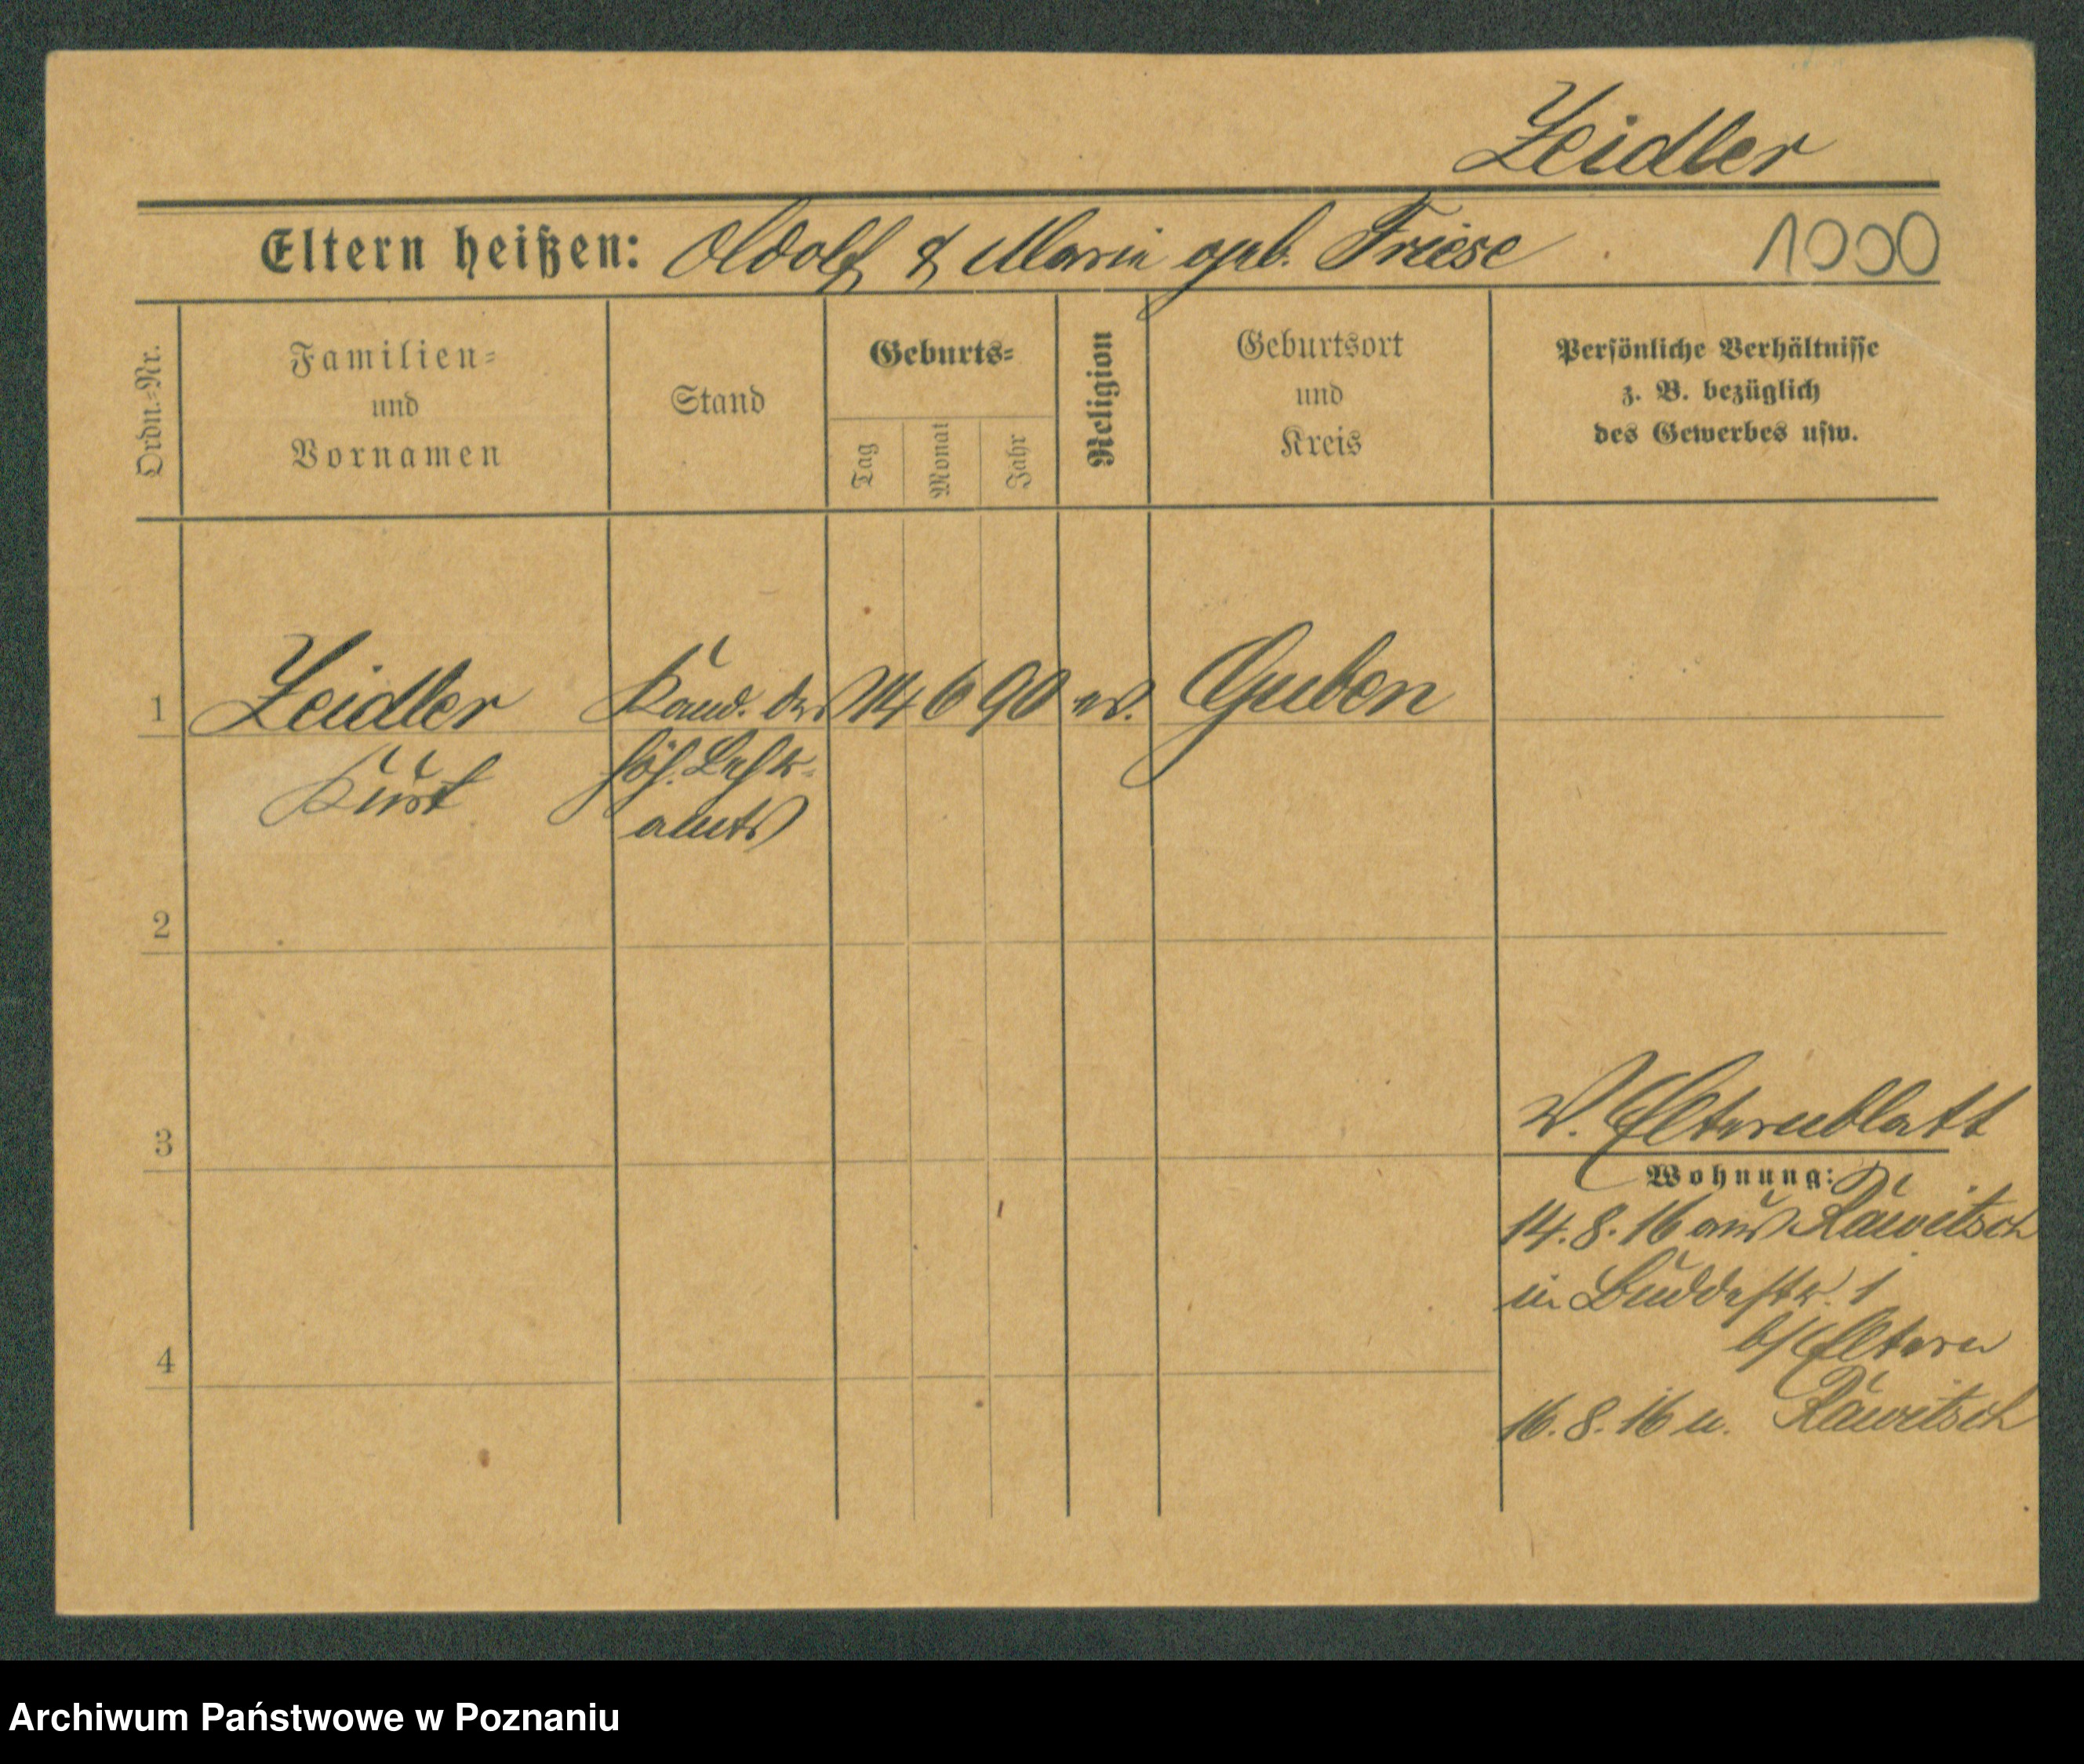 Zeidler
Eltern heißen: Adolf & Marie geb. Friese 1000
Ordn.-Nr.
Familien-
und
Vornamen
Stand
Geburts-
Tag
Monat
Jahr
Religion
Geburtsort
und
Kreis
Persönliche Verhältnisse
z. B. bezüglich
des Gewerbes usw.
1 Zeidler Kand. des 14 6 90 ev. Guben
Kurt höh. Lehr-
amts
2
3
4
v. Elternblatt
Wohnung:
14.8.16 aus Rawitsch
in Buddestr. 1
b/Eltern
16.8.16 n. Rawitsch
Archiwum Państwowe w Poznaniu